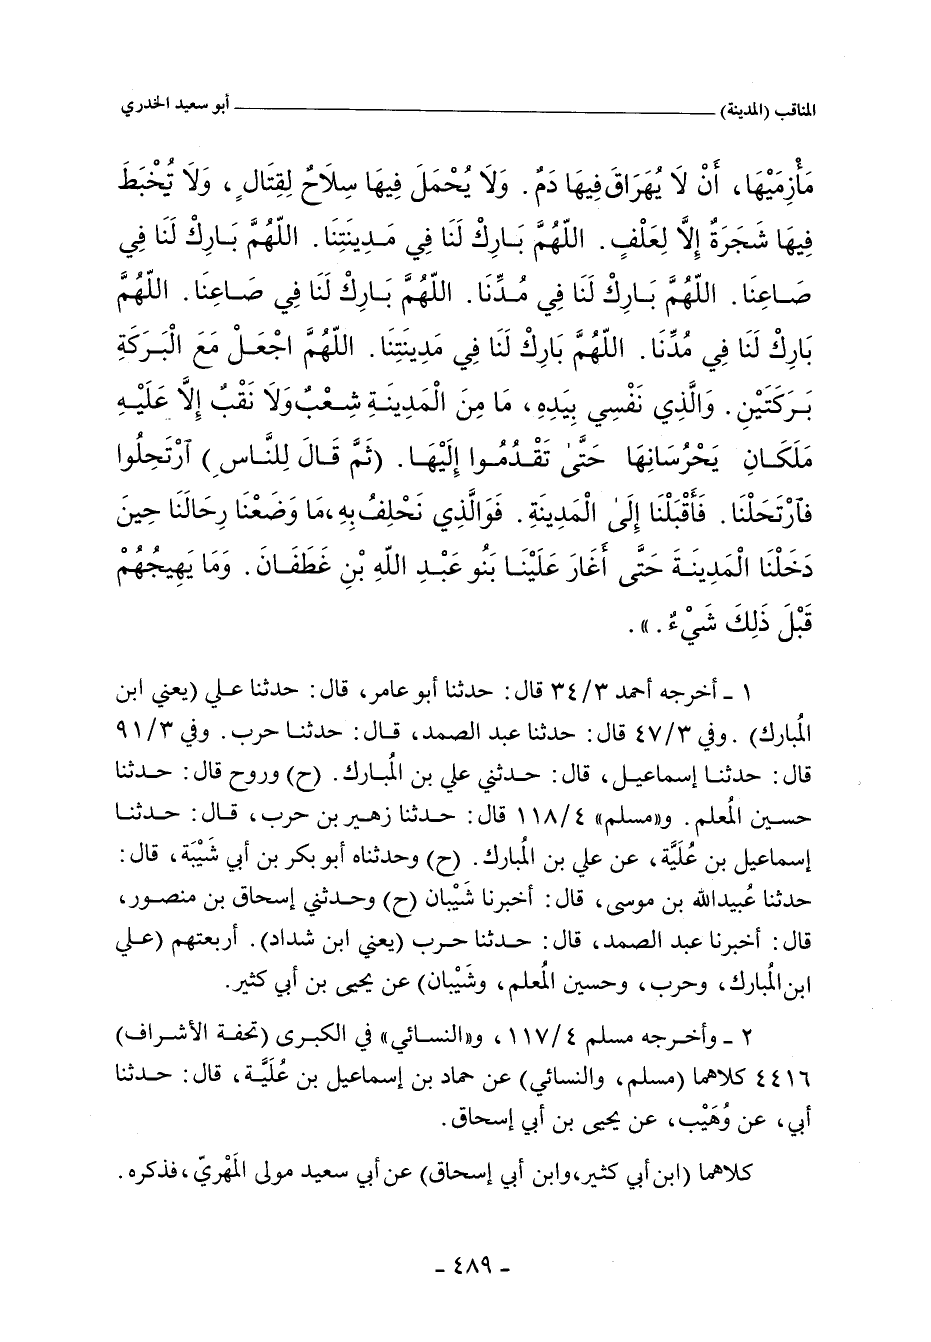 المناقب (المدينة) ــــــــــــــــــــ أبو سعيد الخدري
مَأْزِمَيْهَا، أَنْ لَا يُهَرَاقَ فِيهَا دَمٌ. وَلَا يُحْمَلَ فِيهَا سِلَاحٌ لِقِتَالٍ، وَلَا تُخْبَطَ
فِيهَا شَجَرَةٌ إِلَّا لِعَلْفٍ. اللّٰهُمَّ بَارِكْ لَنَا فِي مَدِينَتِنَا. اللّٰهُمَّ بَارِكْ لَنَا فِي
صَاعِنَا. اللّٰهُمَّ بَارِكْ لَنَا فِي مُدِّنَا. اللّٰهُمَّ بَارِكْ لَنَا فِي صَاعِنَا. اللّٰهُمَّ
بَارِكْ لَنَا فِي مُدِّنَا. اللّٰهُمَّ بَارِكْ لَنَا فِي مَدِينَتِنَا. اللّٰهُمَّ اجْعَلْ مَعَ الْبَرَكَةِ
بَرَكَتَيْنِ. وَالَّذِي نَفْسِي بِيَدِهِ، مَا مِنَ الْمَدِينَةِ شِعْبٌ وَلَا نَقْبٌ إِلَّا عَلَيْهِ
مَلَكَانِ يَحْرُسَانِهَا حَتَّىٰ تَقْدُمُوا إِلَيْهَا. (ثُمَّ قَالَ لِلنَّاسِ) ٱرْتَحِلُوا
فَٱرْتَحَلْنَا. فَأَقْبَلْنَا إِلَىٰ الْمَدِينَةِ. فَوَالَّذِي نَحْلِفُ بِهِ، مَا وَضَعْنَا رِحَالَنَا حِينَ
دَخَلْنَا الْمَدِينَةَ حَتَّى أَغَارَ عَلَيْنَا بَنُو عَبْدِ اللّٰهِ بْنِ غَطَفَانَ. وَمَا يَهِيجُهُمْ
قَبْلَ ذَلِكَ شَيْءٌ.».
١ ـ أخرجه أحمد ٣٤/٣ قال: حدثنا أبو عامر، قال: حدثنا علي (يعني ابن
المُبارك). وفي ٤٧/٣ قال: حدثنا عبد الصمد، قال: حدثنا حرب. وفي ٩١/٣
قال: حدثنا إسماعيل، قال: حدثني علي بن المُبارك. (ح) وروح قال: حدثنا
حسين المُعلم. و«مسلم» ١١٨/٤ قال: حدثنا زهير بن حرب، قال: حدثنا
إسماعيل بن عُلَيَّة، عن علي بن المُبارك. (ح) وحدثناه أبو بكر بن أبي شَيْبَة، قال:
حدثنا عُبيدالله بن موسى، قال: أخبرنا شَيْبان (ح) وحدثني إسحاق بن منصور،
قال: أخبرنا عبد الصمد، قال: حدثنا حرب (يعني ابن شداد). أربعتهم (علي
ابن المُبارك، وحرب، وحسين المُعلم، وشَيْبان) عن يحيى بن أبي كثير.
٢ ـ وأخرجه مسلم ١١٧/٤، و«النسائي» في الكبرى (تحفة الأشراف)
٤٤١٦ كلاهما (مسلم، والنسائي) عن حماد بن إسماعيل بن عُلَيَّة، قال: حدثنا
أبي، عن وُهَيْب، عن يحيى بن أبي إسحاق.
كلاهما (ابن أبي كثير، وابن أبي إسحاق) عن أبي سعيد مولى المَهْريّ، فذكره.
- ٤٨٩ -